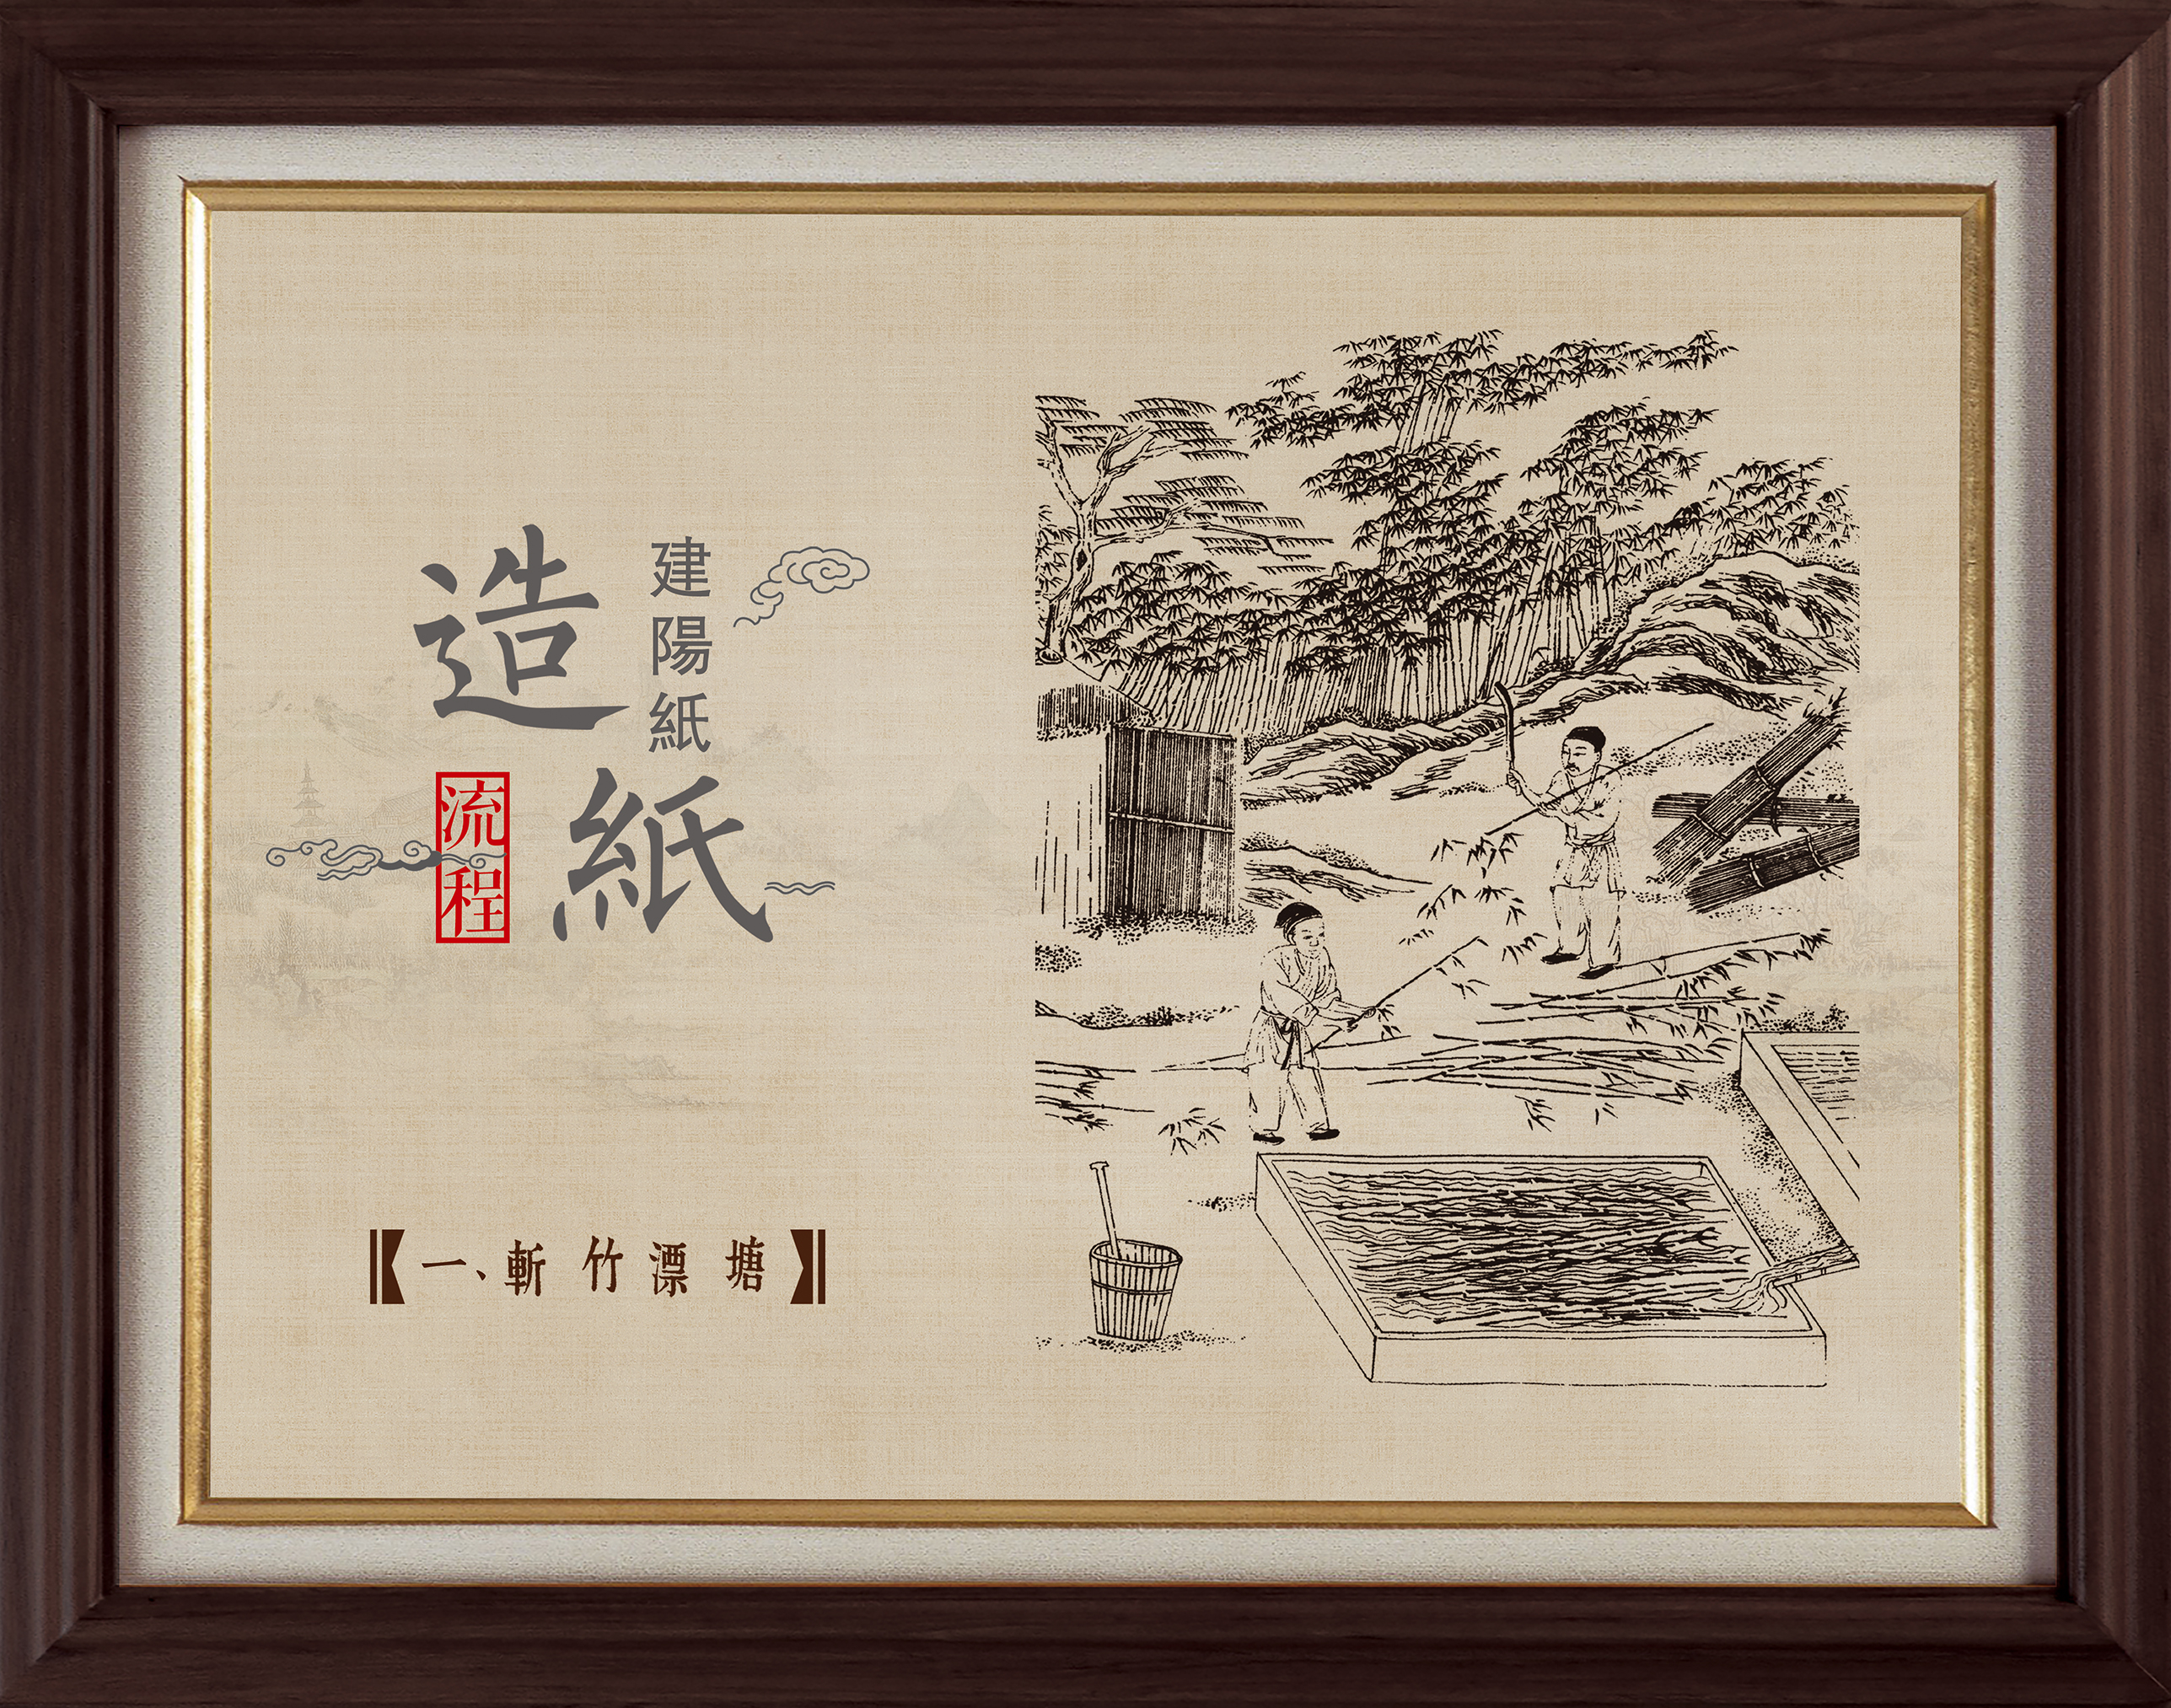 建陽紙
造紙
流程
【一、斬竹漂塘】